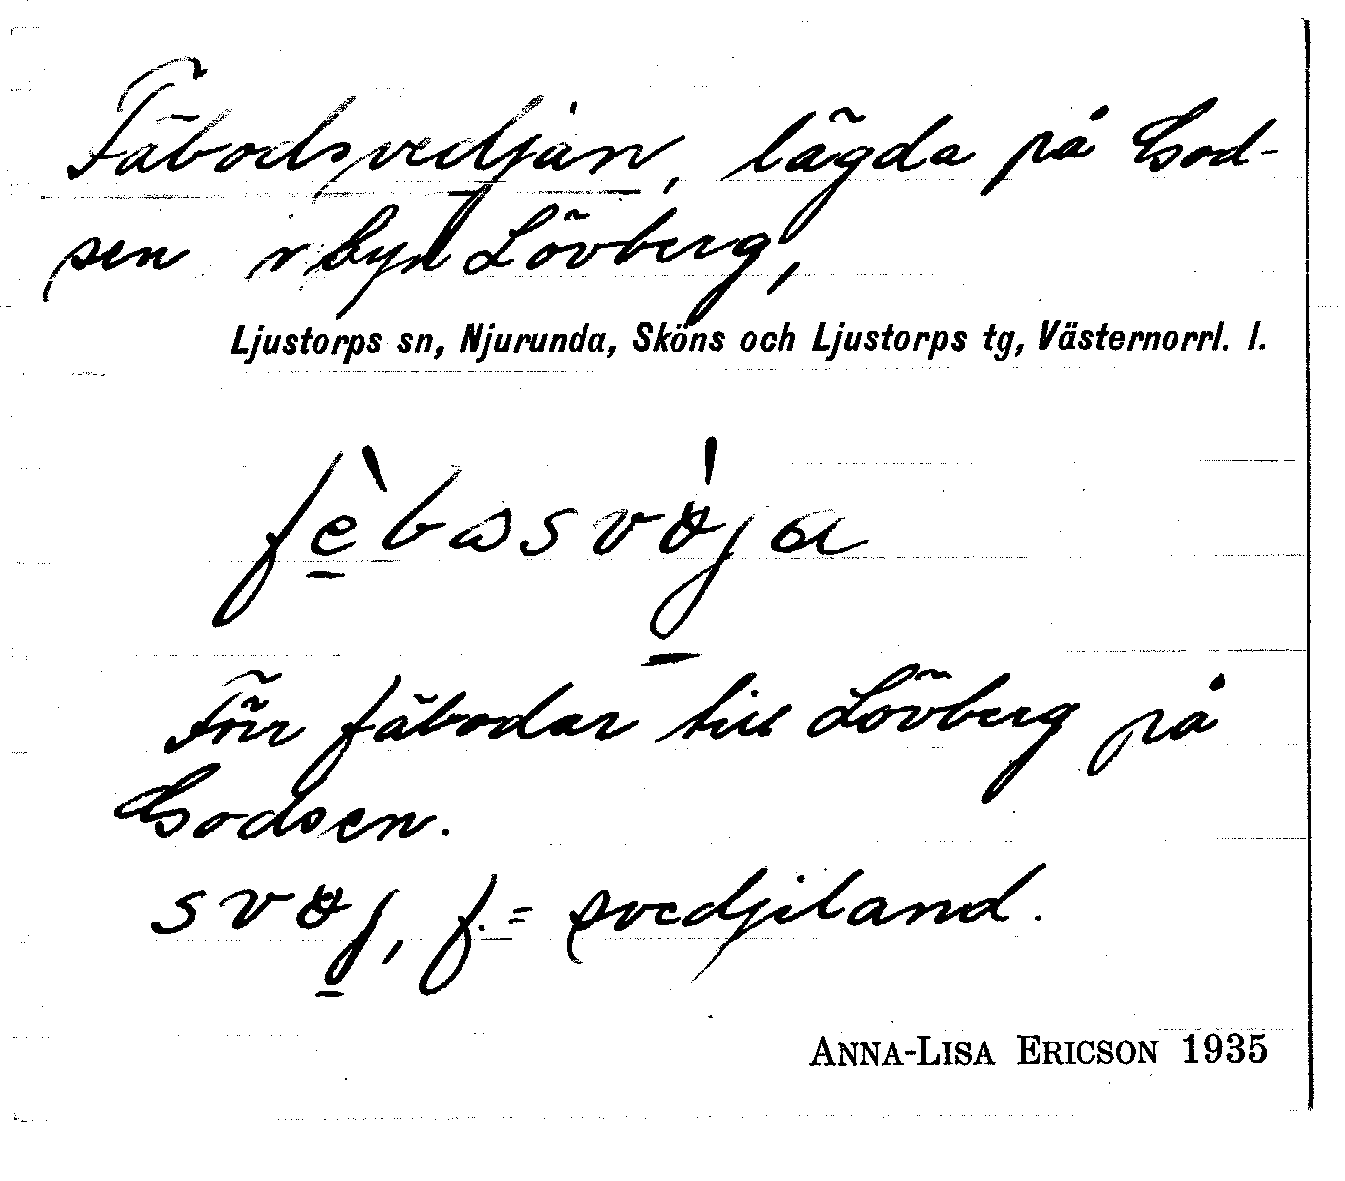 Fäbodsvedjan, lägda på God-
sen v byn Lövberg,
Ljustorps sn, Njurunda, Sköns och Ljustorps tg, Västernorrl. l.
fèbasvø̀ja
Förr fäbodar till Lövberg på
Godsen.
svøj, f. = svedjeland.
ANNA-LISA ERICSON 1935